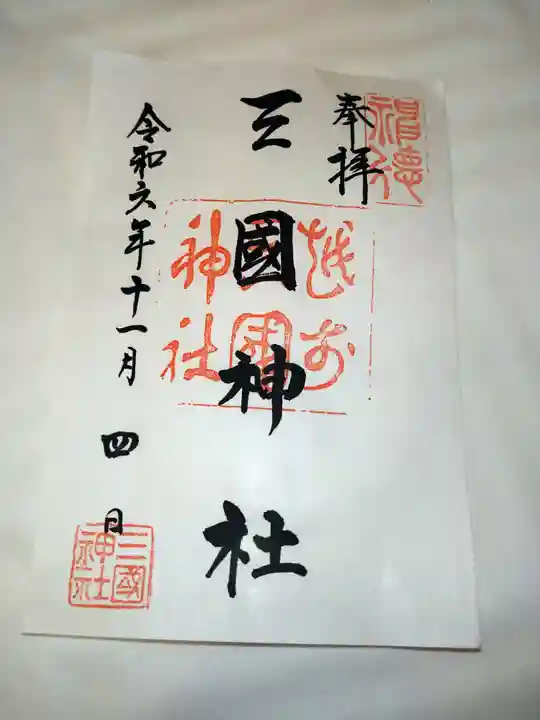 奉拝
三國神社
令和六年十一月四日
越前
三國
神社
三國
神社